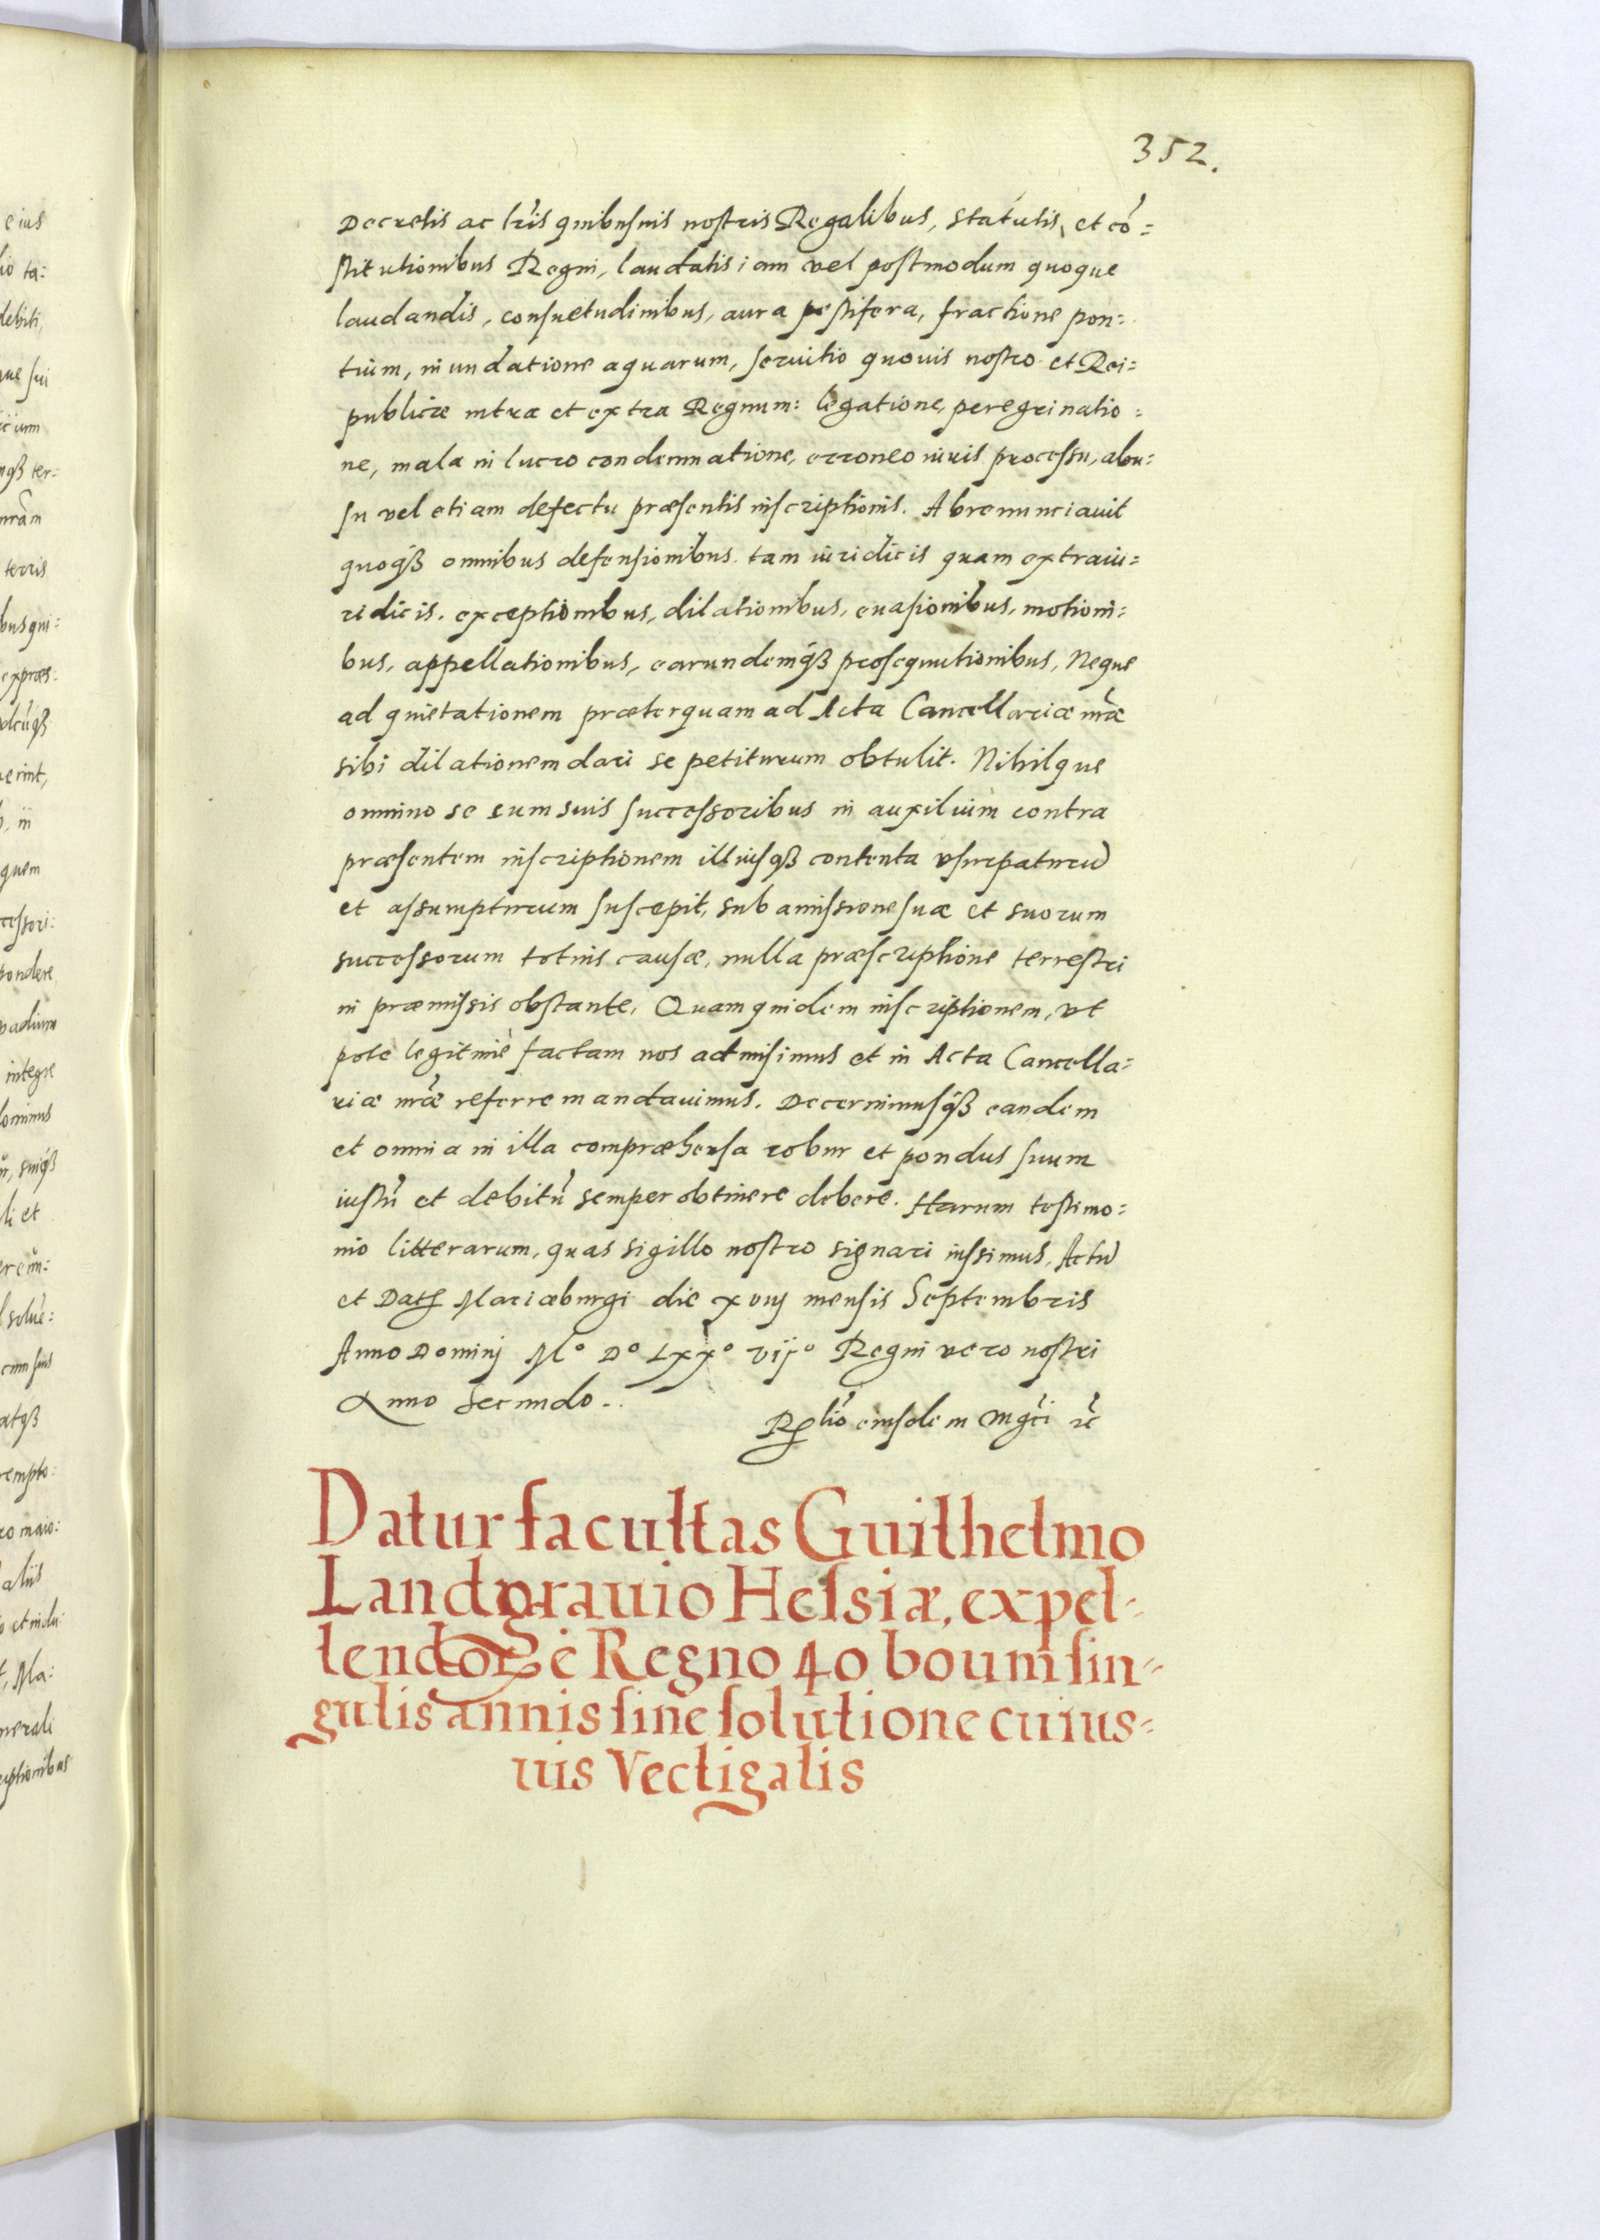 352.
Decretis ac lr̃is quibusuis nostris Regalibus, statutis, et cõ=
stitutionibus Regni, laudatis iam vel postmodum quoque
laudandis, consuetudinibus, aura pestifera, fractione pon=
tium, inundatione aquarum, seruitio quouis nostro et Rei=
publicæ intra et extra Regnum: legatione, peregrinatio=
ne, mala in lucro condemnatione, erroneo iuris processu, abu=
su vel etiam defectu præsentis inscriptionis. Abrenunciauit
quoqꝫ omnibus defensionibus tam iuridicis quam extraiu=
ridicis. exceptionibus, dilationibus, euasionibus, motioni=
bus, appellationibus, earundemqꝫ prosequutionibus, Neque
ad quietationem præterquam ad Acta Cancellariæ nr̃æ
sibi dilationem dari se petiturum obtulit. Nihilque
omnino se cum suis successoribus in auxilium contra
præsentem inscriptionem illiusqꝫ contenta vsurpaturũ
et assumpturum suscepit, sub amissione suæ et suorum
successorum totius causæ, nulla præscriptione terrestri
in præmissis obstante, Quam quidem inscriptionem, vt
pote legitimè factam nos admisimus et in Acta Cancella=
riæ nr̃æ referre mandauimus. Decernimusqꝫ eandem
et omnia in illa compræhensa robur et pondus suum
iustũ et debitũ semper obtinere debere. Harum testimo=
nio litterarum, quas sigillo nostro signari iussimus, Actũ
et Datꝭ Mariæburgi die xviij mensis Septembris
Anno Dominj Mº Dº Lxxº vijº Regni vero nostri
Anno Secundo..
Rꝭlĩo eiusdem Mgc̃i rc̃
Datur facultas Guilhelmo
Landgrauio Hessiæ, expel=
lendorꝝ è Regno 40 boum sin=
gulis annis sine solutione cuius=
uis Vectigalis
eius
debiti,
terris
expræs:
quem
pondere
integre
li et
aliis